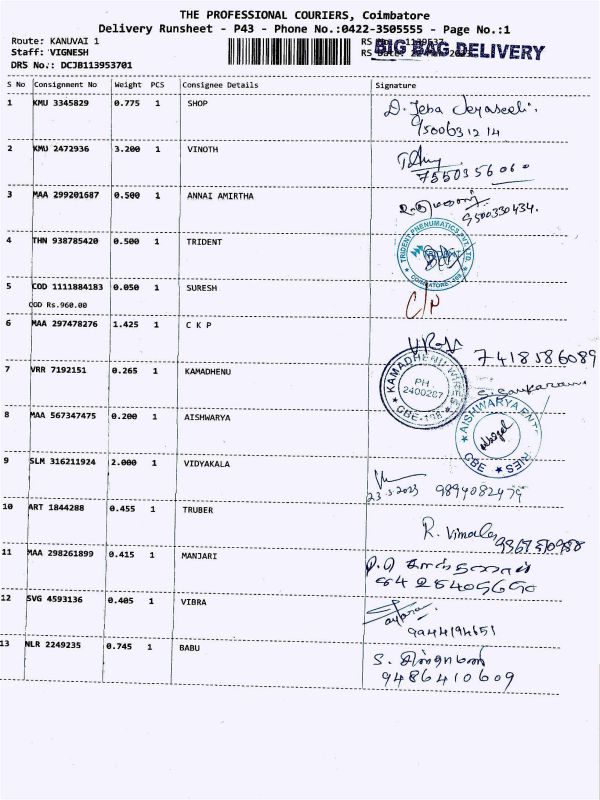 THE PROFESSIONAL COURIERS, Coimbatore
Delivery Runsheet - P43 - Phone No.:0422-3505555 - Page No.:1
Route: KANUVAI 1
Staff: VIGNESH
BIG BAG DELIVERY
DRS No.: DCJB113953701
S No Consignment No Weight PCS Consignee Details Signature
1 KMU 3345829 0.775 1 SHOP D. Jeba Jeyaseeli.
9500631214
2 KMU 2472936 3.200 1 VINOTH
7550356060
3 MAA 299201687 0.500 1 ANNAI AMIRTHA
9500330434.
4 THN 938785420 0.500 1 TRIDENT
TRIDENT PNEUMATICS PVT. LTD.
5 COD 1111884183 0.050 1 SURESH
COD Rs.960.00
6 MAA 297478276 1.425 1 C K P
7418586089
7 VRR 7192151 0.265 1 KAMADHENU
KAMADHENU
PH
2400287
CBE-108
8 MAA 567347475 0.200 1 AISHWARYA
AISHWARYA
CBE
9 SLM 316211924 2.000 1 VIDYAKALA
23.3.2023 9894082479
10 ART 1844288 0.455 1 TRUBER
R. Vimala
11 MAA 298261899 0.415 1 MANJARI
12 SVG 4593136 0.405 1 VIBRA
9944194651
13 NLR 2249235 0.745 1 BABU
9486410609